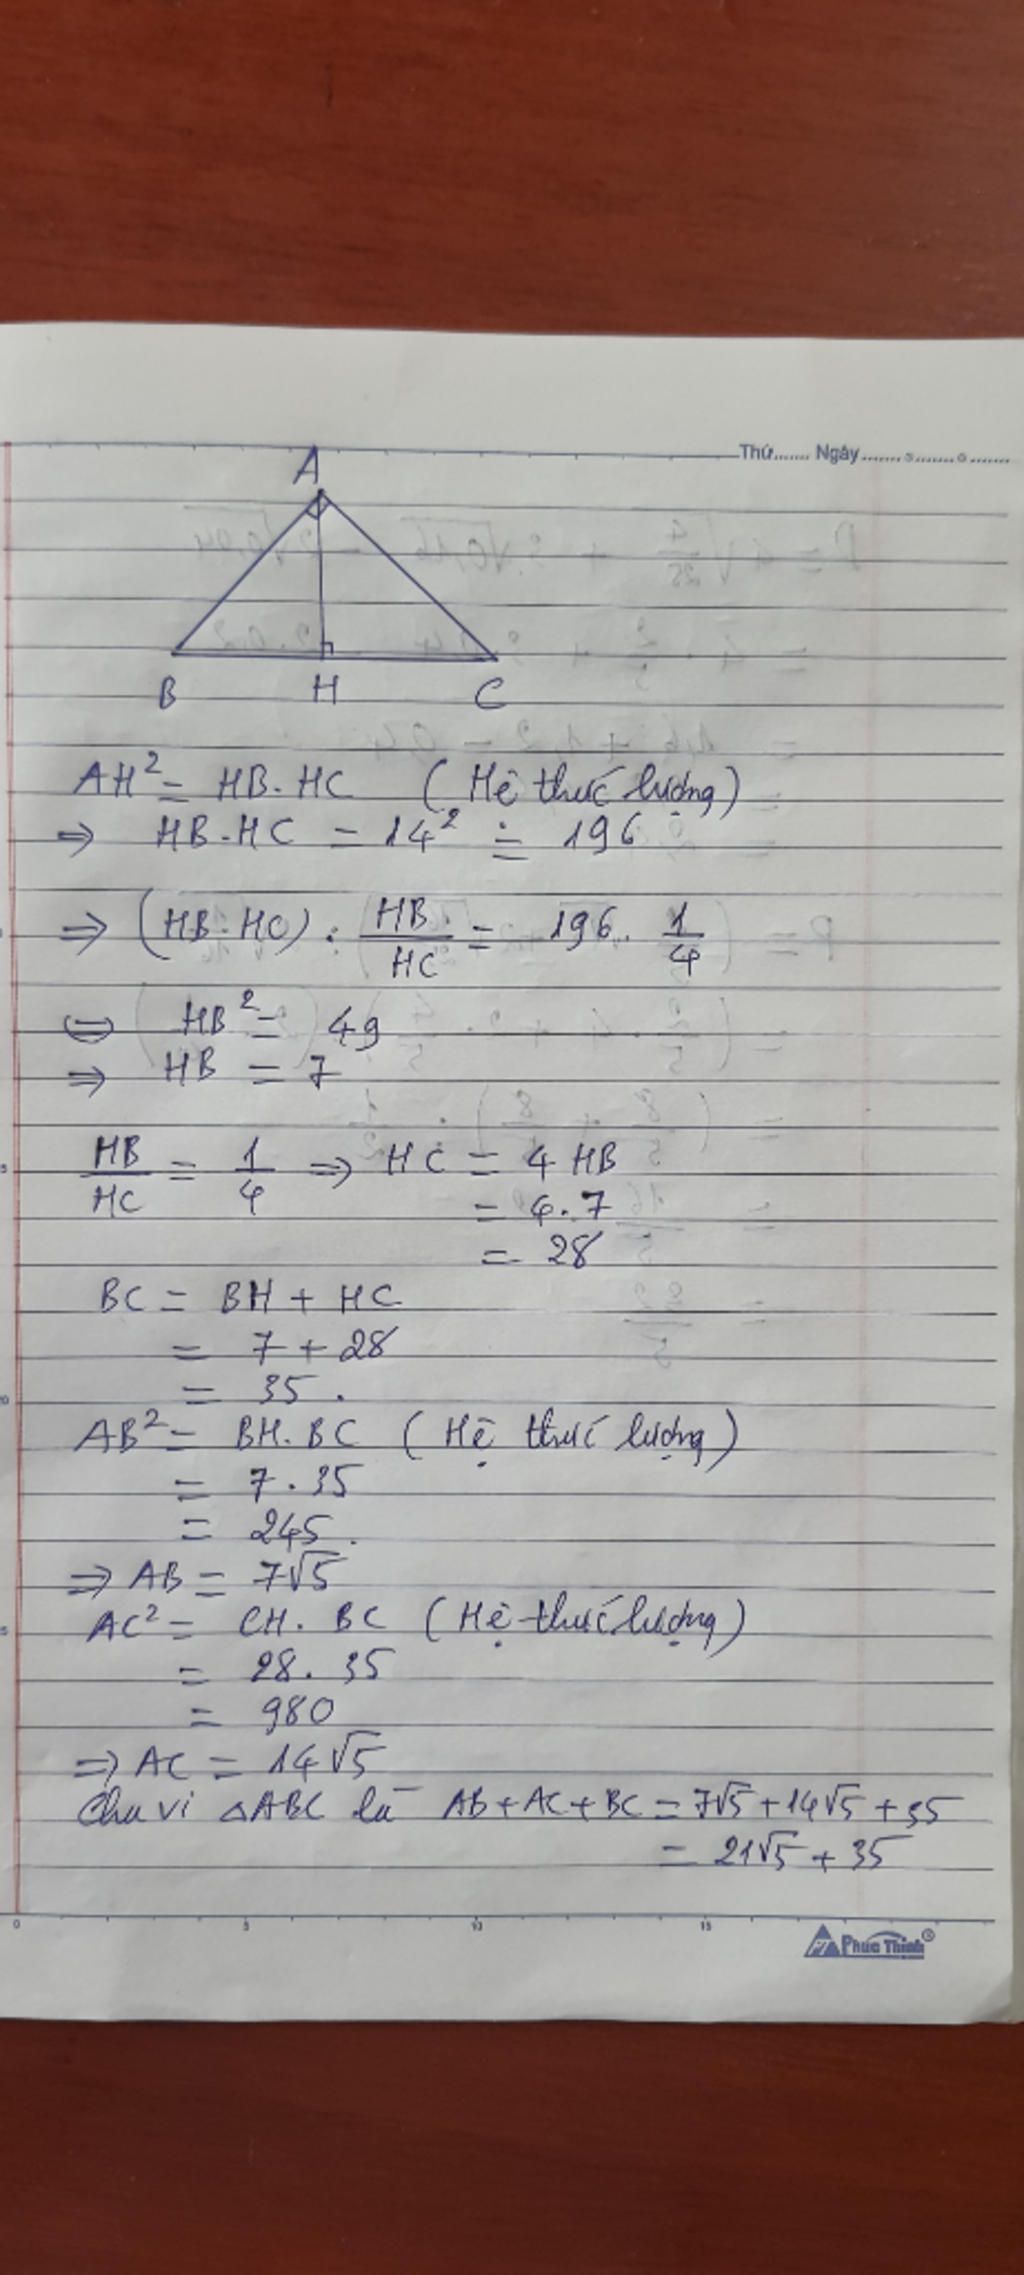 Thứ....... Ngày.......
A
B H C
AH² = HB.HC (Hệ thức lượng)
⇒ HB.HC = 14² = 196
⇒ (HB.HC) . HB/HC = 196. 1/4
⇔ HB² = 49
⇒ HB = 7
HB/HC = 1/4 ⇒ HC = 4 HB
= 4.7
= 28
BC = BH + HC
= 7 + 28
= 35.
AB² = BH.BC (Hệ thức lượng)
= 7.35
= 245.
⇒ AB = 7√5
AC² = CH.BC (Hệ thức lượng)
= 28.35
= 980
⇒ AC = 14√5
Chu vi △ABC là AB+AC+BC = 7√5+14√5+35
= 21√5+35
0 5 10 15
PT Phúc Thịnh®